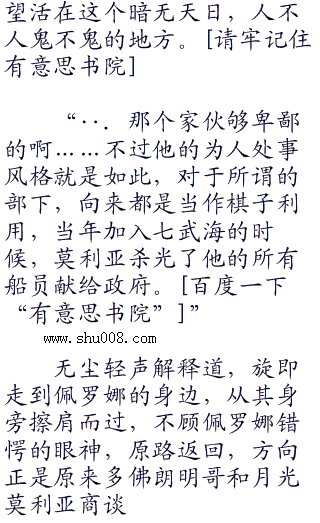 望活在这个暗无天日，人不
人鬼不鬼的地方。[请牢记住
有意思书院]
“··．那个家伙够卑鄙
的啊……不过他的为人处事
风格就是如此，对于所谓的
部下，向来都是当作棋子利
用，当年加入七武海的时
候，莫利亚杀光了他的所有
船员献给政府。[百度一下
“有意思书院”]”
www.shu008.com
无尘轻声解释道，旋即
走到佩罗娜的身边，从其身
旁擦肩而过，不顾佩罗娜错
愕的眼神，原路返回，方向
正是原来多佛朗明哥和月光
莫利亚商谈